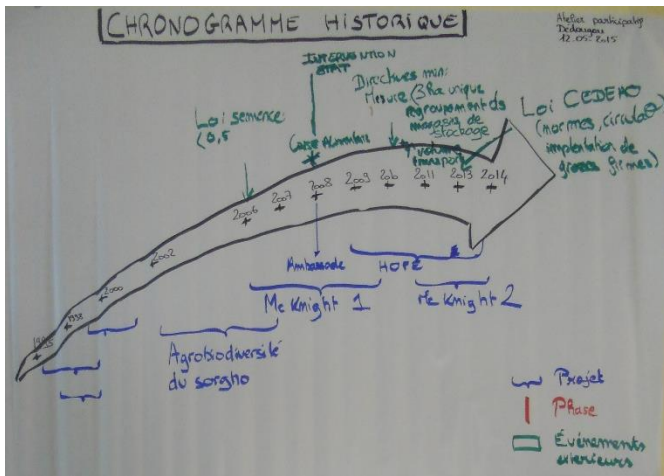 CHRONOGRAMME HISTORIQUE
Atelier participatif
12.05.2015
INTERVENTION
ETAT
Directives mini
Mesure (3 Ha unique
regroupement ds
magasin de
stockage
volume
transport
Loi semence
(0,5
Crise Alimentaire
Loi CEDEAO
(normes, circulat
implantation de
grosses firmes)
1995
1998
2000
2002
2006
2007
2008
2009
2010
2011
2013
2014
Ambassade
HOPE
Mc Knight 1
Mc Knight 2
Agrobiodiversité
du sorgho
Projet
Phase
Événements
exterieurs